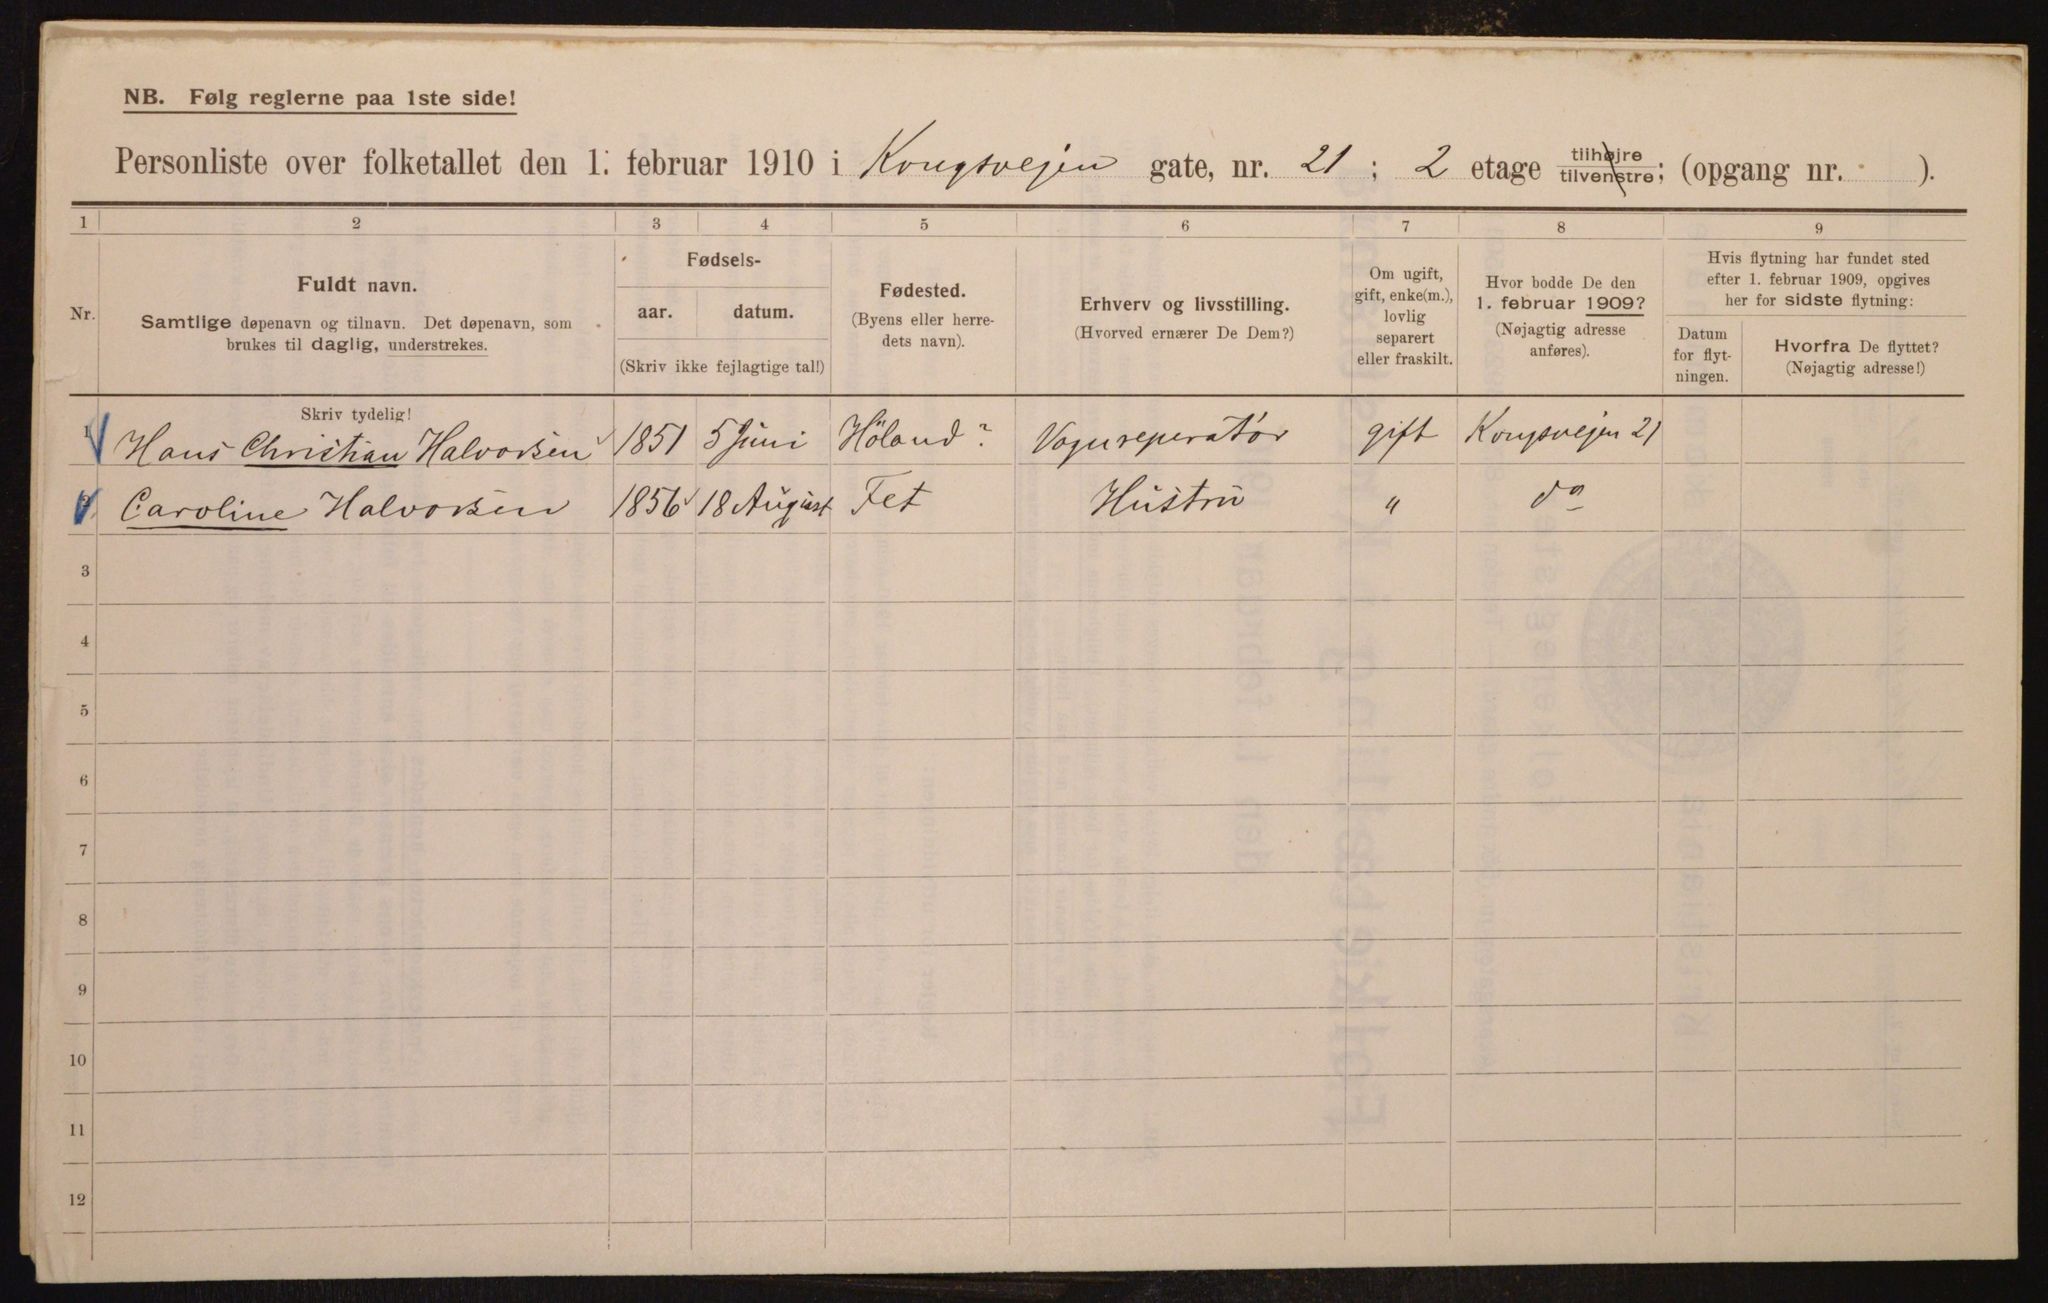 NB. Følg reglerne paa 1ste side!
Personliste over folketallet den 1. februar 1910 i Kongsvejen gate, nr. 21 ; 2 etage tilhøjre tilvenstre; (opgang nr. ).
1 2 3 4 5 6 7 8 9
Nr.
Fuldt navn.
Samtlige døpenavn og tilnavn. Det døpenavn, som
brukes til daglig, understrekes.
Fødsels-
aar. datum.
(Skriv ikke fejlagtige tal!)
Fødested.
(Byens eller herre-
dets navn).
Erhverv og livsstilling.
(Hvorved ernærer De Dem?)
Om ugift,
gift, enke(m.),
lovlig
separert
eller fraskilt.
Hvor bodde De den
1. februar 1909?
(Nøjagtig adresse
anføres).
Hvis flytning har fundet sted
efter 1. februar 1909, opgives
her for sidste flytning:
Datum
for flyt-
ningen.
Hvorfra De flyttet?
(Nøjagtig adresse!)
Skriv tydelig!
1 Hans Christian Halvorsen 1851 5 Juni Höland? Vognreperatør gift Kongsvejen 21
Caroline Halvorsen 1856 18 August Fet Hustru " do
3
4
5
6
7
8
9
10
11
12